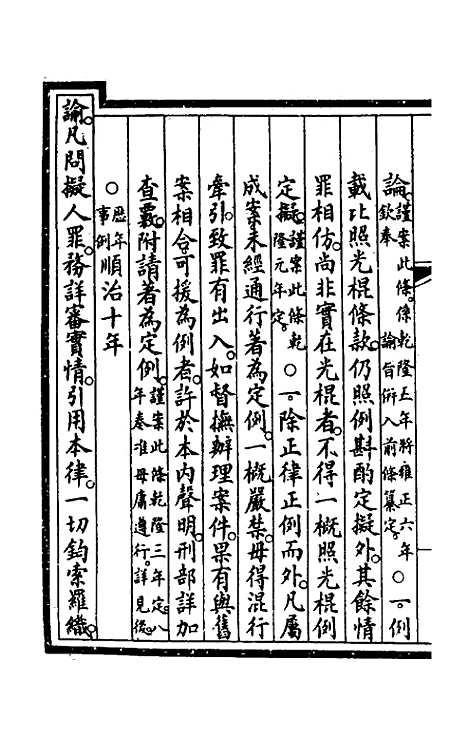 論。謹案此條。係乾隆五年。將雍正六年
欽奉 諭旨。術入前條纂定。○一。例
載比照光棍條款。仍照例斟酌定擬外。其餘情
罪相仿。尚非實在光棍者。不得一概照光棍例
定擬。謹案此條乾隆元年定。○一。除正律正例而外。凡屬
成案未經通行著為定例。一概嚴禁。毋得混行
牽引。致罪有出入。如督撫辦理案件。果有與舊
案相合可援為例者。許於本內聲明。刑部詳加
查覈。附請著為定例。謹案此條乾隆三年定。八年奏准毋庸遵行。詳見後。
○歷年事例順治十年
諭。凡問擬人罪。務詳審實情。引用本律。一切鉤索羅織。